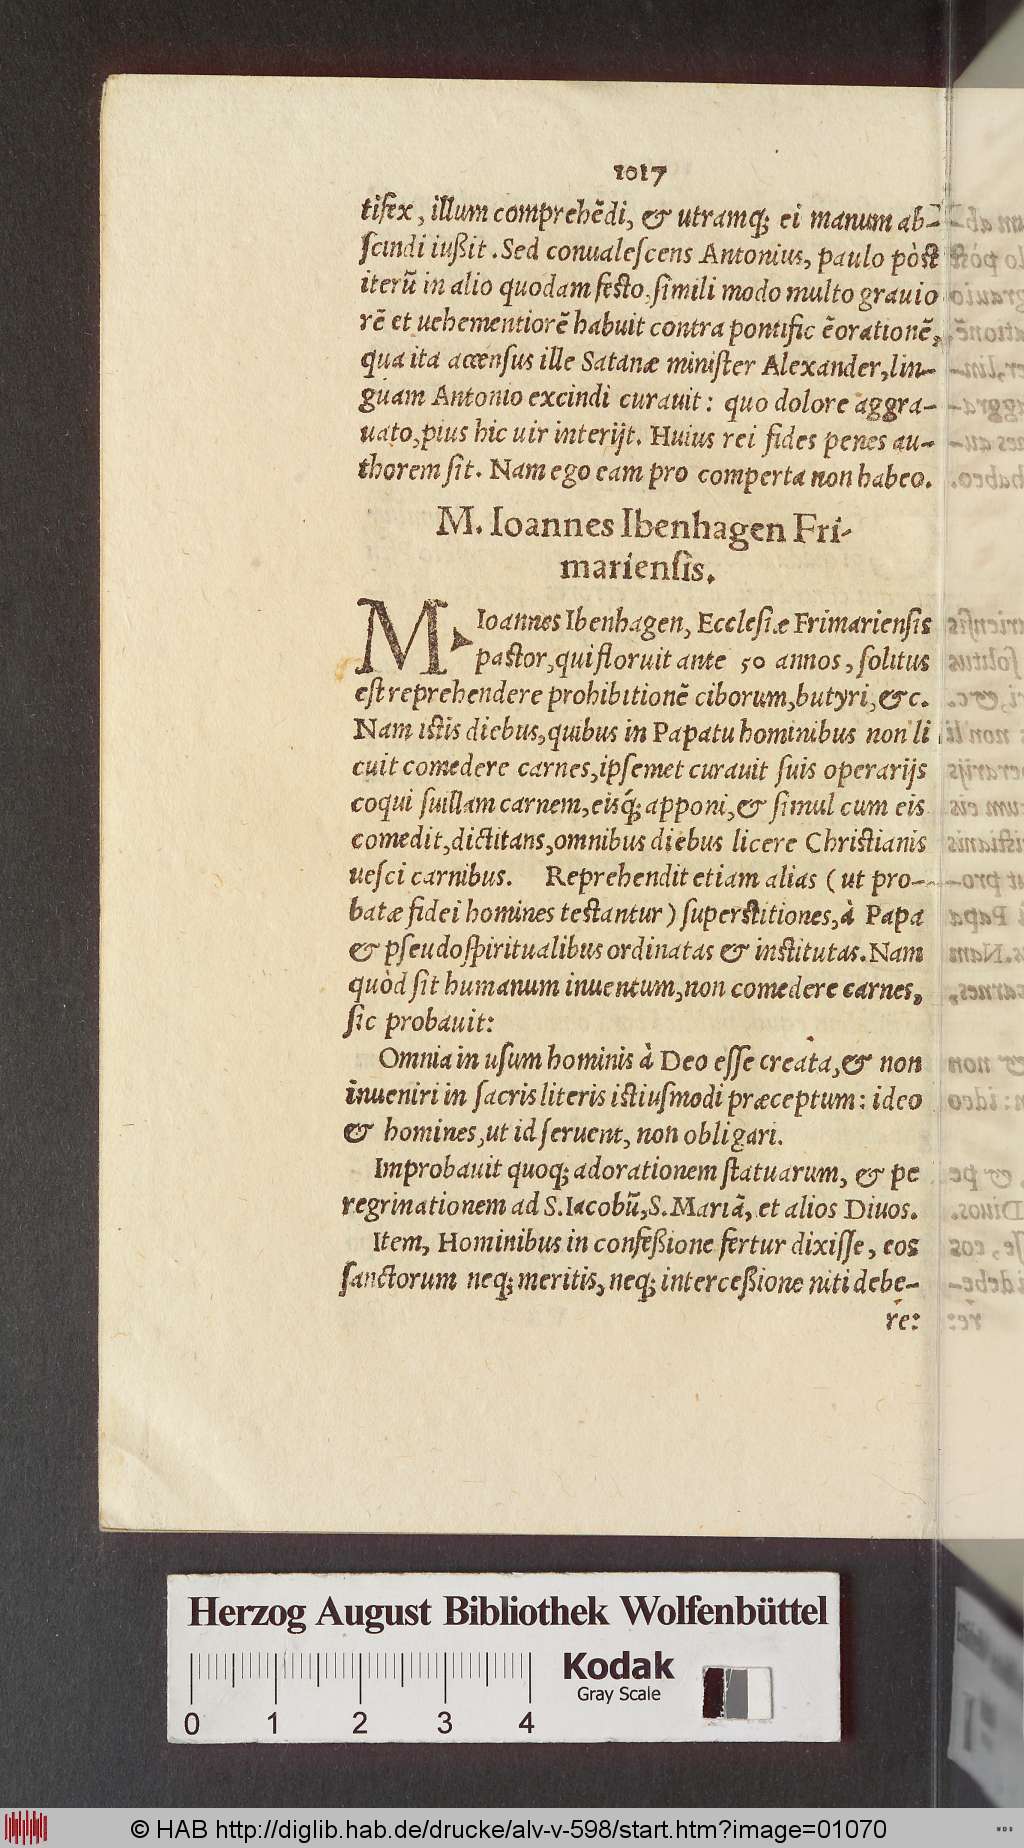 1017
tifex, illum comprehẽdi, & utramq; ei manum ab-
ſcindi iußit. Sed conualeſcens Antonius, paulo pòst
iterũ in alio quodam feſto, ſimili modo multo grauio
rẽ et uehementiorẽ habuit contra pontific ẽorationẽ,
qua ita accenſus ille Satanæ miniſter Alexander, lin-
guam Antonio excindi curauit: quo dolore aggra-
uato, pius hic uir interijt. Huius rei fides penes au-
thorem ſit. Nam ego eam pro comperta non habeo.
M. Ioannes Ibenhagen Fri-
marienſis.
M. Ioannes Ibenhagen, Eccleſiæ Frimarienſis
paſtor, qui floruit ante 50 annos, ſolitus
eſt reprehendere prohibitionẽ ciborum, butyri, &c.
Nam istis diebus, quibus in Papatu hominibus non li
cuit comedere carnes, ipſemet curauit ſuis operarijs
coqui ſuillam carnem, eisq́; apponi, & ſimul cum eis
comedit, dictitans, omnibus diebus licere Chriſtianis
ueſci carnibus. Reprehendit etiam alias (ut pro-
batæ fidei homines testantur) ſuperstitiones, à Papa
& pſeudoſpiritualibus ordinatas & inſtitutas. Nam
quòd ſit humanum inuentum, non comedere carnes,
ſic probauit:
Omnia in uſum hominis à Deo eſſe creata, & non
inueniri in ſacris literis istiuſmodi præceptum: ideo
& homines, ut id ſeruent, non obligari.
Improbauit quoq; adorationem ſtatuarum, & pe
regrinationem ad S. Iacobũ, S. Mariã, et alios Diuos.
Item, Hominibus in confeßione fertur dixiſſe, eos
ſanctorum neq; meritis, neq; interceßione niti debe-
re:
Herzog August Bibliothek Wolfenbüttel
Kodak
Gray Scale
0 1 2 3 4
© HAB http://diglib.hab.de/drucke/alv-v-598/start.htm?image=01070